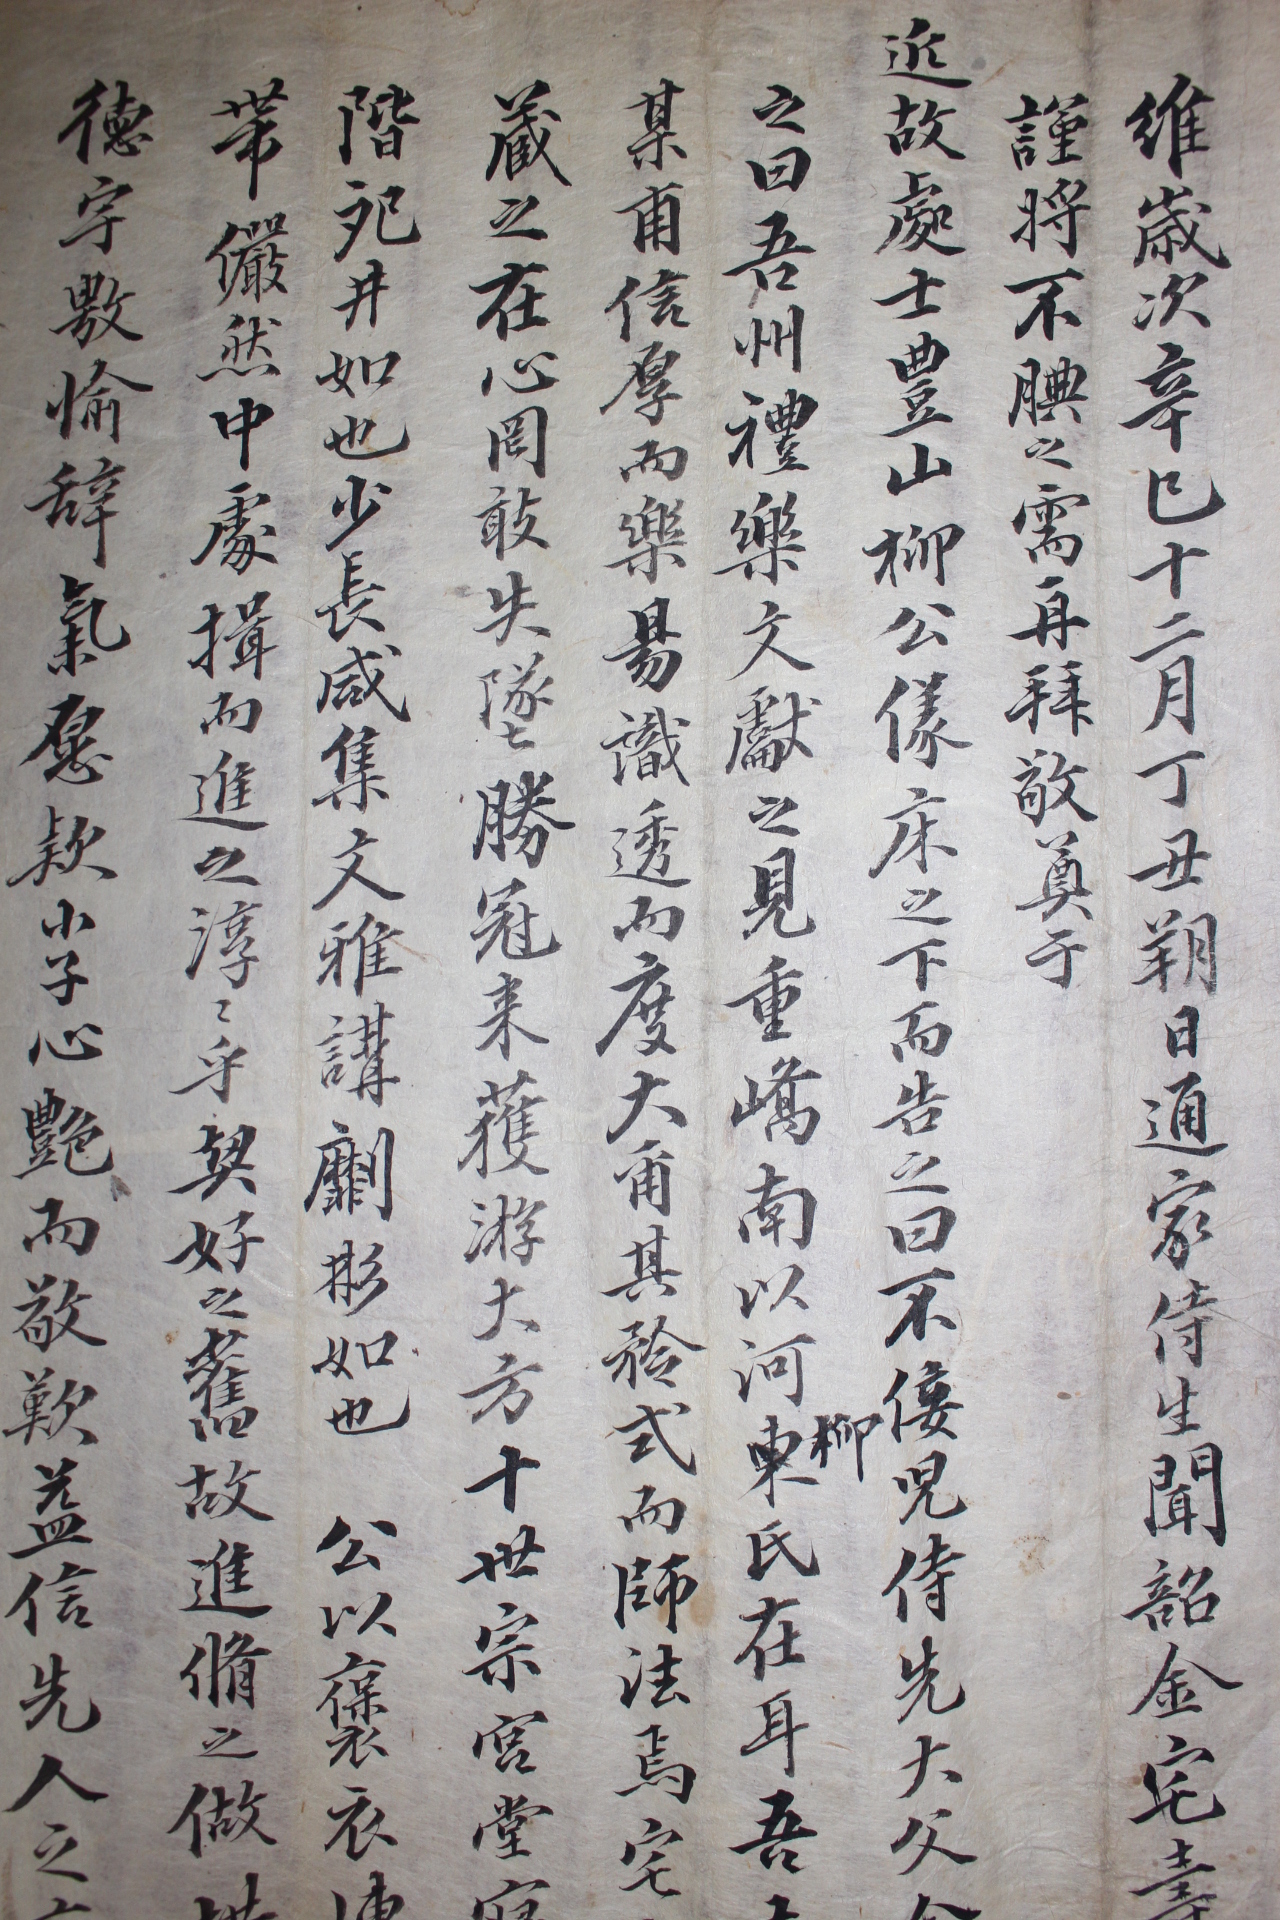 維歲次辛巳十二月丁丑朔日通家侍生聞韶金宅壽
謹將不腆之需再拜敬奠于
近故處士豊山柳公㒸床之下而告之曰不佞児侍先大父
之曰吾州禮樂文獻之見重嶠南以河東柳氏在耳吾
某甫信厚而樂易識透而度大甭其矜式而師法焉宅
藏之在心罔敢失墜勝冠来獲游大方十世宗宮堂
階戺井如也少長咸集文雅講劘彬如也 公以褒衣
帶儼然中處揖而進之淳〻乎契好之舊故進脩之做
德宇敷愉辞氣慇款小子心艶而敬歎益信先人之